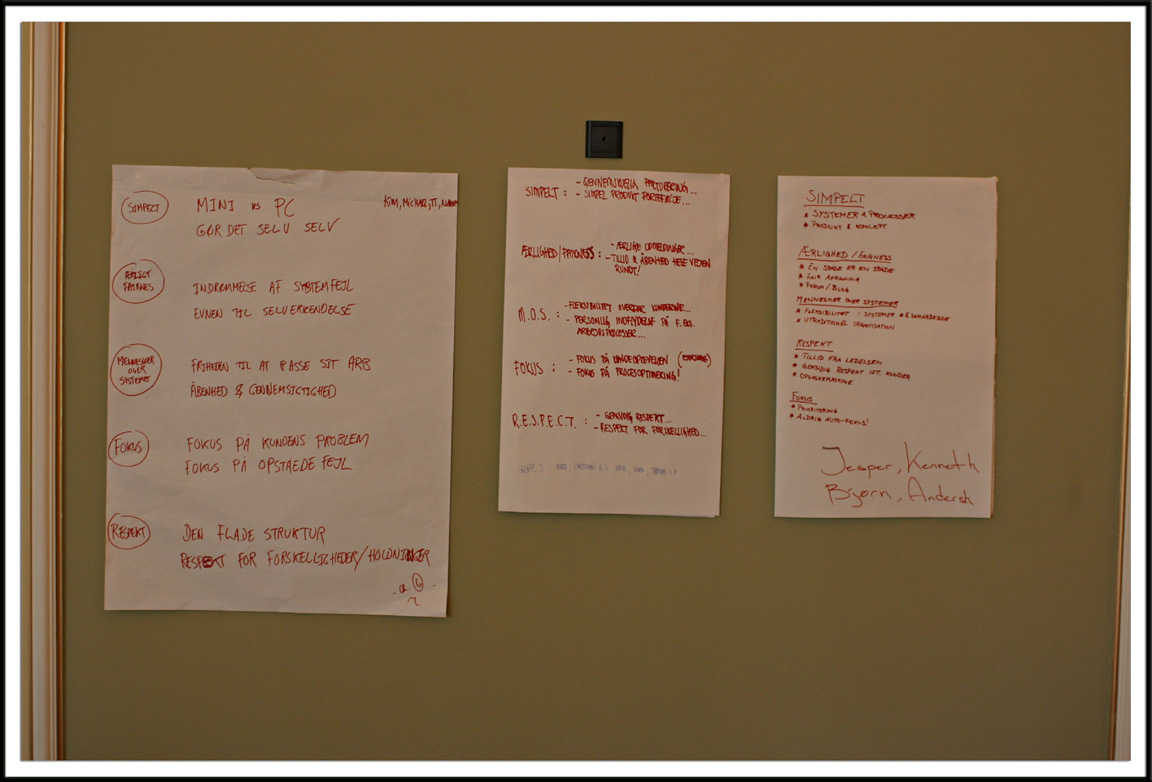 SIMPELT
MINI vs PC
KIM, MICHAEL, TT,
GØR DET SELV SELV
ÆRLIGT
FAIRNES
INDRØMMELSE AF SYSTEMFEJL
EVNEN TIL SELVERKENDELSE
MENNESKER
OVER
SYSTEMET
FRIHEDEN TIL AT PASSE SIT ARB
ÅBENHED & GENNEMSIGTIGHED
FOKUS
FOKUS PÅ KUNDENS PROBLEM
FOKUS PÅ OPSTÅEDE FEJL
RESPEKT
DEN FLADE STRUKTUR
RESPEKT FOR FORSKELLIGHEDER/HOLDNINGER
SIMPELT :
- GENNEMSKUELIG FAKTURERING...
- SIMPEL PRODUKT PORTEFØLJE...
ÆRLIGHED/FAIRNESS :
- ÆRLIGE UDMELDINGER...
- TILLID & ÅBENHED HELE VEJEN
RUNDT!
M.O.S. :
- FLEKSIBILITET OVERFOR KUNDERNE...
- PERSONLIG INDFLYDELSE PÅ F.EKS.
ARBEJDSPROCESSER...
FOKUS :
- FOKUS PÅ KUNDEOPLEVELSEN
- FOKUS PÅ PROCESOPTIMERING!
R.E.S.P.E.C.T. :
- GENSIDIG RESPEKT...
- RESPEKT FOR FORSKELLIGHED...
SIMPELT
* SYSTEMER & PROCESSER
* PRODUKT & KOMLETT
ÆRLIGHED / FAIRNESS
* EN SPADE ER EN SPADE
* FAIR AFREGNING
* FORUM / BLOG
MENNESKER OVER SYSTEMER
* FLEKSIBILITET I SYSTEMER & SAMARBEJDE
* UTRADITIONEL ORGANISATION
RESPEKT
* TILLID FRA LEDELSEN
* GENSIDIG RESPEKT IFT. KUNDER
* OPVASKEMASKINE
FOKUS
* PRIORITERING
* ALDRIG AUTO-FOKUS!
Jesper, Kenneth
Bjørn, Anders